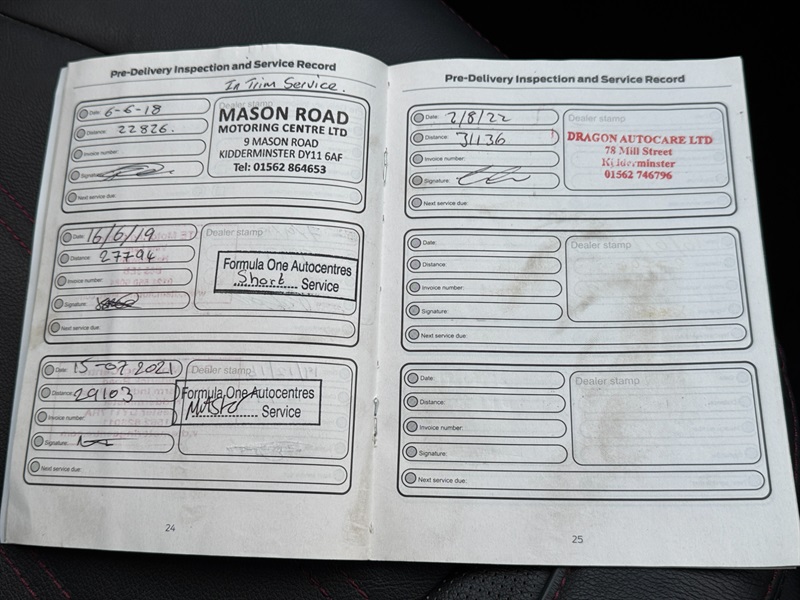 Pre-Delivery Inspection and Service Record
In Trim Service.
Date: 6-6-18
Distance: 22826.
Invoice number:
Signature:
Next service due:
Dealer stamp
MASON ROAD
MOTORING CENTRE LTD
9 MASON ROAD
KIDDERMINSTER DY11 6AF
Tel: 01562 864653
Date: 16/6/19
Distance: 27794
Invoice number:
Signature:
Next service due:
Dealer stamp
Formula One Autocentres
Short Service
Date: 15-07-2021
Distance: 29103
Invoice number:
Signature:
Next service due:
Dealer stamp
Formula One Autocentres
Service
24
Pre-Delivery Inspection and Service Record
Date: 2/8/22
Distance: 31136
Invoice number:
Signature:
Next service due:
Dealer stamp
DRAGON AUTOCARE LTD
78 Mill Street
Kidderminster
01562 746796
Date:
Distance:
Invoice number:
Signature:
Next service due:
Dealer stamp
Date:
Distance:
Invoice number:
Signature:
Next service due:
Dealer stamp
25